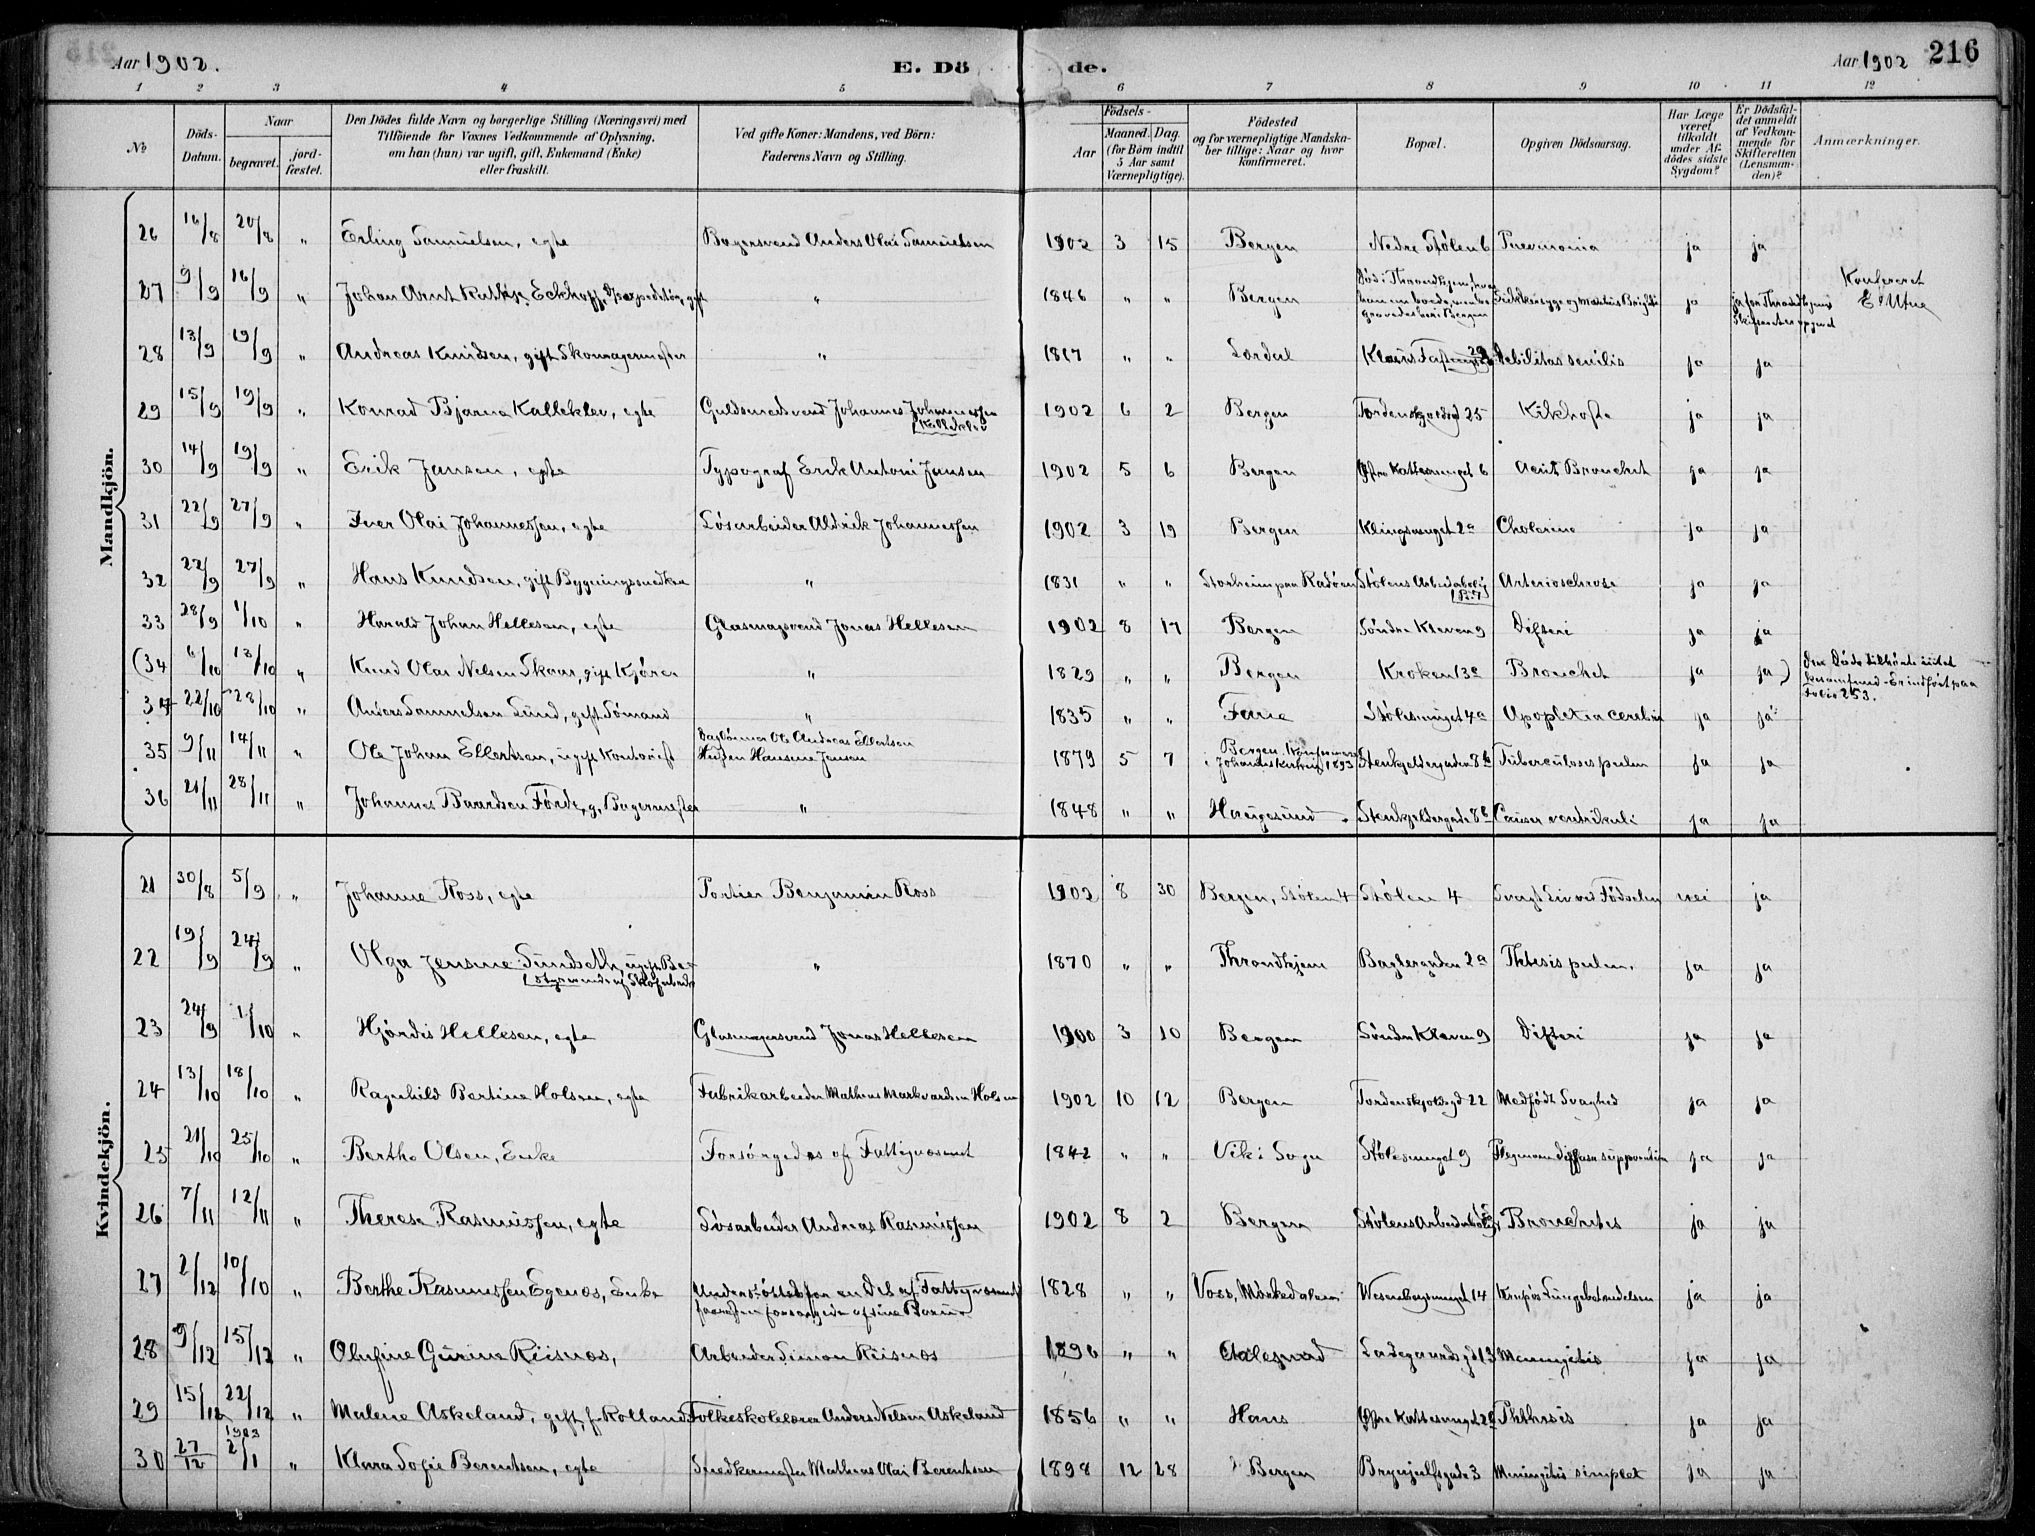 Aar 1902.
E. Döde.
Aar 1902
216
1 2 3 4 5 6 7 8 9 10 11 12
No
Döds-Datum.
Naar
begravet.
jord-fæstet.
Den Dödes fulde Navn og borgerlige Stilling (Næringsvei) med
Tilföiende for Voxnes Vedkommende af Oplysning,
om han (hun) var ugift, gift, Enkemand (Enke)
eller fraskilt.
Ved gifte Koner: Mandens, ved Börn:
Faderens Navn og Stilling.
Födsels-
Aar
Maaned. Dag.
(for Börn indtil
5 Aar samt
Værnepligtige).
Födested
og for værnepligtige Mandska-
ber tillige: Naar og hvor
konfirmeret.
Bopæl.
Opgiven Dödsaarsag.
Har Læge
været
tilkaldt
under Af-
dödes sidste
Sygdom?
Er Dödsfal-
det anmeldt
af Vedkom-
mende for
Skifteretten
(Lensman-
den)?
Anmærkninger.
Mandkjön.
26 16/8 20/8 " Erling Samuelsen, egte Bagersvend Anders Olai Samuelsen 1902 3 15 Bergen Nedre Stølen 6 Pnevmonia ja ja
27 9/9 16/9 " Johan Arnt Eckhoff, Expeditør, gift " 1846 " " Bergen Død i Throndhjem, hvor han en boede, men begravedes her i Bergen og Morbus Brighti ja ja for Throndhjems Skifteret Konfereret E Utne
28 13/9 19/9 " Andreas Knudsen, gift Skomagermester " 1817 " " Lærdal Debilitas senilis ja ja
29 15/9 19/9 " Konrad Bjarne Kalleklev, egte Guldsmedsvend Johannes Johannessen Kalleklev 1902 6 2 Bergen Tordenskjoldsgd 25 Kikhoste ja ja
30 14/9 19/9 " Erik Jansen, egte Typograf Erik Antoni Jansen 1902 5 6 Bergen Øfre Kattesmuget 6 Acut Bronchit ja ja
31 22/9 27/9 " Iver Olai Johannessen, egte Løsarbeider Aldrik Johannessen 1902 3 19 Bergen Klingsmuget 2a Cholerine ja ja
32 22/9 27/9 " Hans Knudsen, gift Bygningssnedker " 1831 " " Storheim paa Radøen Stølens Arbeiderbolig ja ja
33 28/9 1/10 " Harald Johan Hellesen, egte Glasmagersvend Jonas Hellesen 1902 8 17 Bergen Søndre Kleven 9 Difteri ja ja
(34 6/10 13/10 " Knud Olai Nelsen Skaar, gift Kjører " 1829 " " Bergen Kroken 13a Bronchit ja ja) Den Døde tilhørte intet Kirkesamfund - Er indført paa Folio 253.
34 22/10 28/10 " Anders Samuelsen Lund, gift Sømand " 1835 " " Stølesmuget 4a Apoplexia cerebri ja ja
35 9/11 14/11 " Ole Johan Ellertsen, ugift Kontorist Daglønner Ole Andreas Ellertsen Hansine Jensen 1879 5 7 Bergen. Konfirmeret i Johanneskirken 1893 Stenkjeldergaden 8b Tuberculosis pulm ja ja
36 21/11 28/11 " Johannes Baardsen Førde, g. Bagermester " 1848 " " Haugesund Stenkjeldergade 8b Cancer ventrikuli ja ja
Kvindekjön.
21 30/8 5/9 " Johanne Ross, egte Portier Benjamin Ross 1902 8 30 Bergen, Stølen 4 Stølen 4 Svagt Liv ved Fødselen nei ja
22 19/9 24/9 " Olga Jensine Sundseth, ugift Bestyrerinde af Skofabrik " 1870 " " Throndhjem Bagergaden 2a Phtisis pulm. ja ja
23 24/9 1/10 " Hjørdis Hellesen, egte Glasmagersvend Jonas Hellesen 1900 3 10 Bergen Søndre Kleven 9 Difteri ja ja
24 13/10 18/10 " Ragnhild Bertine Holsen, egte Fabrikarbeider Matheus Markvardsen Holsen 1902 10 12 Bergen Tordenskjoldsgd 22 Medfødt Svaghed ja ja
25 21/10 25/10 " Berthe Olsen, Enke Forsørgedes af Fattigvæsenet 1842 " " Vik i Sogn Stølesmuget 9 ja ja
26 7/11 12/11 " Therese Rasmussen, egte Løsarbeider Andreas Rasmussen 1902 8 2 Bergen Stølens Arbeiderbolig Bronchitis ja ja
27 2/12 10/10 " Berthe Rasmussen Egenæs, Enke Understøttet for en Del af Fattigvæsenet forøvrigt forsørget af sine Børn 1828 " " Voss, Mørkedalen Wesenbergsmuget 14 Krupøs Lungebetændelse ja ja
28 9/12 15/12 " Olufine Gurine Riisnæs, Arbeider Simon Riisnæs 1896 " " Aalesund Ladegaardsgd 13 Meningitis ja ja
29 15/12 22/12 " Malene Askeland, gift, f. Rolland Folkeskolelærer Anders Nelsen Askeland 1856 " " Hans Øfre Kattesmuget Phthisis ja ja
30 27/12 1903 2/1 " Klara Sofie Berentsen, egte Snedkermester Mathias Olai Berentsen 1898 12 28 Bergen Brynjulfsgade 3 Meningitis simplex ja ja